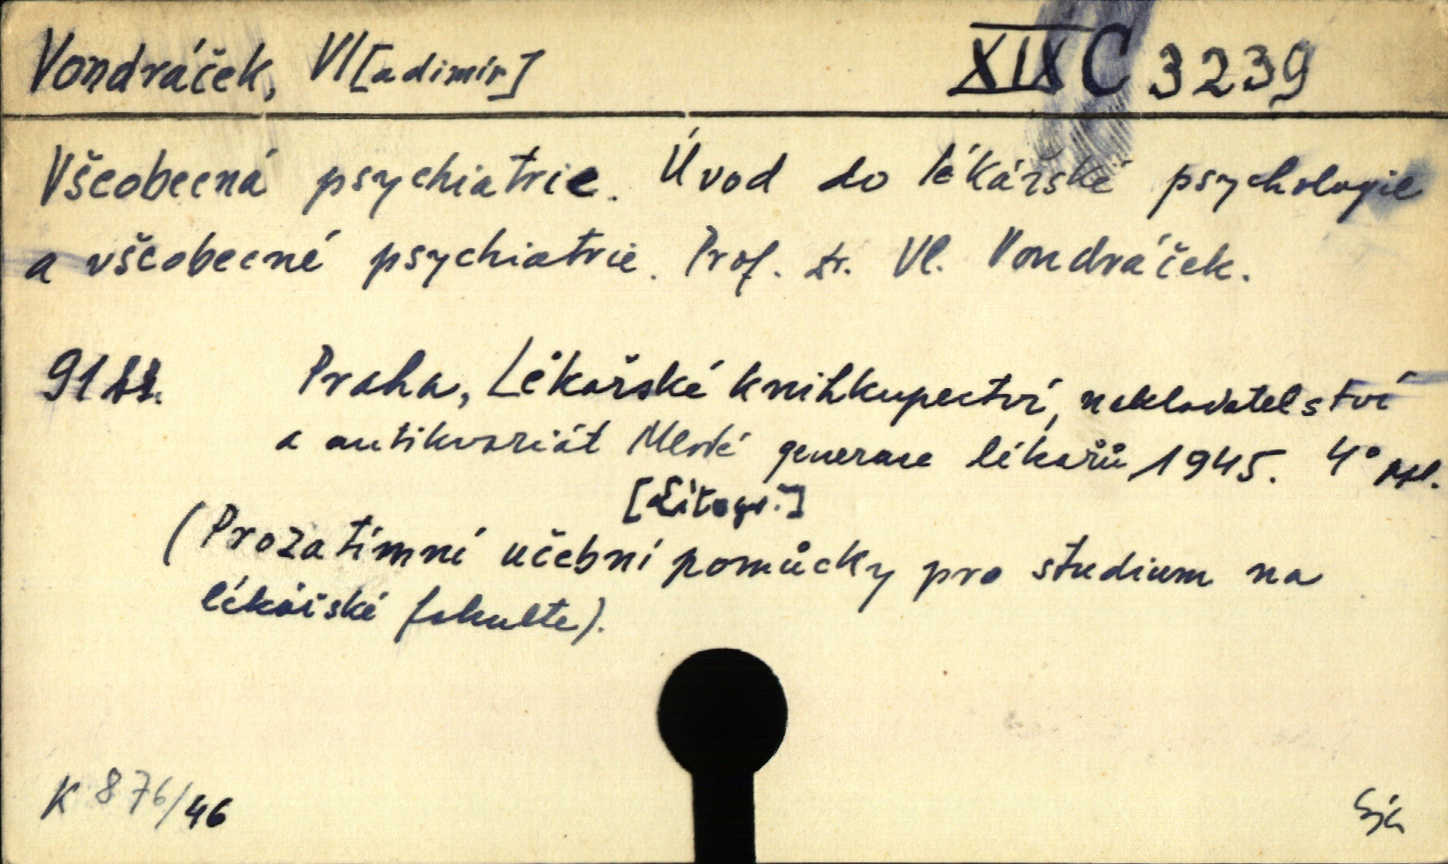 Vondráček, Vl[adimír] XIX C 3239
Všeobecná psychiatrie. Úvod do lékařské psychologie
a všeobecné psychiatrie. Prof. Dr. Vl. Vondráček.
91 ll. Praha, Lékařské knihkupectví, nakladatelství
a antikvariát Mladé generace lékařů 1945. 4°
[Litogr.]
(Prozatímní učební pomůcky pro studium na
lékařské fakultě).
K 876/46